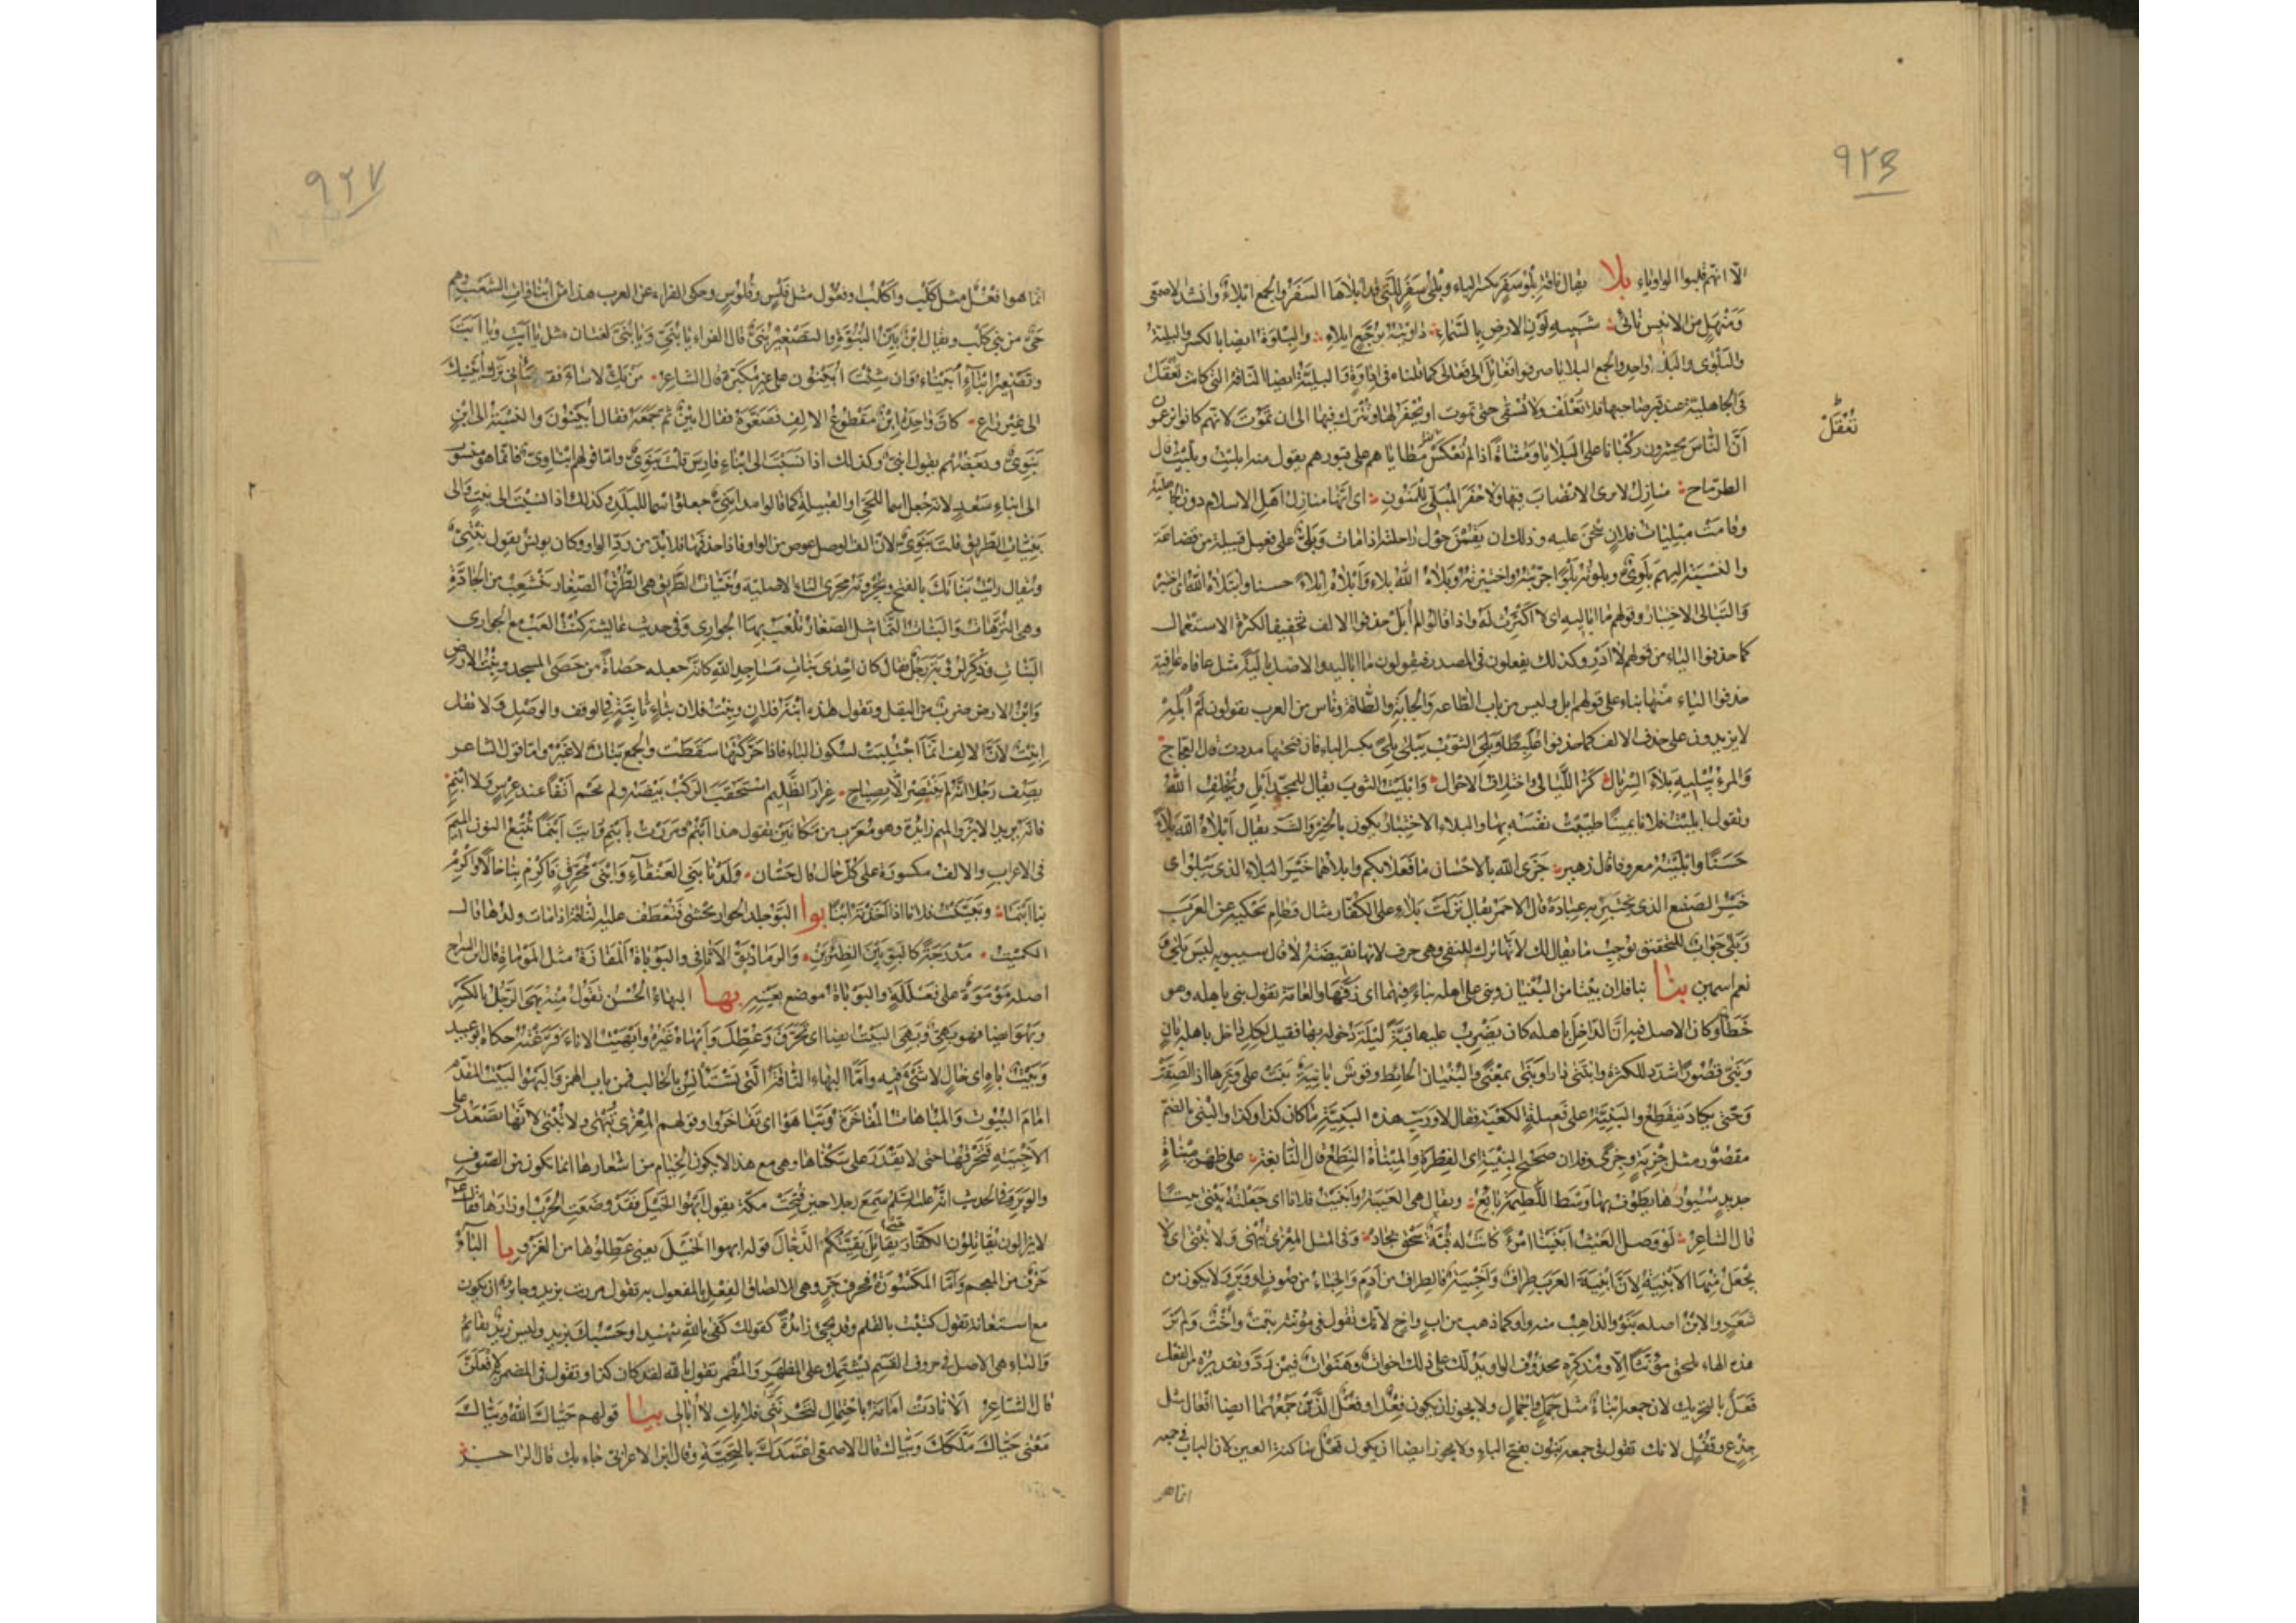 ۹۲۶
الا انهم قلبوا الواو ياء بلا يقال ناقة بلو سفر بكسر الباء وبلى سفر للتى قد ابلاها السفر والجمع ابلاء وانشد الاصمعى
ومنهل من الانيس نائى شبيه لون الارض بالسماء داويته برجع ابلاء والبلوة ايضا بالكسر والبلية
والبلوى والبلاء واحد والجمع البلايا صرفوا فعائل الى فعالى كما قلناه فى اداوة والبلية ايضا الناقة التى كانت تعقل
فى الجاهلية عند قبر صاحبها فلا تعلف ولا تسقى حتى تموت او يحفر لها وتترك فيها الى ان تموت لانهم كانوا يزعمون
تعقل
ان الناس يحشرون ركبانا على البلايا ومشاة اذا لم تعكس مطاياهم على قبورهم يقول منه ابليت وبليت قال
الطرماح منازل لا ترى الانصاب فيها ولا حفر المبلى للمنون اى انها منازل اهل الاسلام دون الجاهلية
وقامت مبليات فلان ينحن عليه وذلك ان يقمن حول راحلته اذا مات وبلى على فعيل قبيلة من قضاعة
والنسبة اليهم بلوى وبلوته بلوا جربته واختبرته وبلاه الله بلاء وابلاه ابلاء حسنا وابتلاه الله اى اختبره
والتبالى الاختبار وقولهم ما اباليه اى لا اكترث له واذا قالوا لم ابل حذفوا الالف تخفيفا لكثرة الاستعمال
كما حذفوا الياء من قولهم لا ادر وكذلك يفعلون فى المصدر فيقولون ما اباليه والاصل بالية مثل عافاه عافية
حذفوا الياء منها بناء على قولهم لم ابل وليس من باب الطاعة والجابة والطاقة وناس من العرب يقولون لم ابله
لا يزيدون على حذف الالف كما حذفوا علبطا وبلى الثوب يبلى بلى بكسر الباء فان فتحتها مددت قال العجاج
والمرء يبليه بلاء السربال كر الليالى واختلاف الاحوال وابليت الثوب يقال للمجد ابل ويخلف الله
وتقول ابليت فلانا يمينا طيبت نفسه بها والبلاء الاختبار يكون بالخير والشر يقال ابلاه الله بلاء
حسنا وابليته معروفا قال زهير جزى الله بالاحسان ما فعلا بكم وابلاهما خير البلاء الذى يبلوا اى
خير الصنيع الذى يختبر به عباده قال الاحمر يقال نزلت بلاء على الكفار مثال قطام يحكيه عن العرب
وبلى جواب للتحقيق يوجب ما يقال لك لانها ترك للنفى وهى حرف لانها نقيضة لا قال سيبويه ليس بلى و
نعم اسمين بنا بنا فلان بيتا من البنيان وبنى على اهله بناء فيهما اى زفها والعامة تقول بنى باهله وهو
خطأ وكان الاصل فيه ان الداخل باهله كان يضرب عليها قبة ليلة دخوله بها فقيل لكل داخل باهله بان
وبنى قصورا شدد للكثرة وابتنى دارا وبنى بمعنى والبنيان الحائط وقوس بانية بنت على وترها اذا لصقت
به حتى يكاد ينقطع والبنية على فعيلة الكعبة يقال لا ورب هذه البنية ما كان كذا وكذا والبنى بالضم
مقصور مثل جزية وجزى وفلان صحيح البنية اى الفطرة والمبناة النطع قال النابغة على ظهر مبناة
جديد سيورها يطوف بها وسط اللطيمة بائع ويقال هى العيبة وابنيت فلانا اى جعلته يبنى بيتا
قال الشاعر لو وصل الغيث ابنينا امرء كانت له قبة سحق بجاد وفى المثل المعزى تبهى ولا تبنى اى لا
يجعل منها الابنية لان ابنية العرب طراف واخبية فالطراف من ادم والخباء من صوف او وبر ولا يكون من
شعر والابن اصله بنو والذاهب منه واو كما ذهب من اب واخ لانك تقول فى مؤنثه بنت واخت ولم نر
هذه الهاء تلحق مؤنثا الا ومذكره محذوف الواو يدلك على ذلك اخوات وهنوات فيمن رد وتقديره من الفعل
فعل بالتحريك لان جمعه ابناء مثل جمل واجمال ولا يجوز ان يكون فعلا او فعلا الذين جمعهما ايضا افعال مثل
جذع وقفل لانك تقول فى جمعه بنون بفتح الباء ولا يجوز ايضا ان يكون فعلا ساكنة العين لان الباب فى جمعه
انما هو
۹۲۷
انما هو افعل مثل كلب واكلب او فعول مثل فلس وفلوس وحكى الفراء عن العرب هذا من ابناوات الشعب وهم
حى من بنى كلب ويقال ابن بين البنوة والتصغير بنى قال الفراء يا بنى ويا بنى لغتان مثل يا ابت ويا ابت
وتصغير ابناء ابيناء وان شئت ابينون على غير مكبره قال الشاعر من يك لا ساء فقد ساءنى ترك ابينيك
الى غير راع كان واحده ابن مقطوع الالف فصغره فقال ابين ثم جمعه فقال ابينون والنسبة الى ابن
بنوى وبعضهم يقول ابنى وكذلك اذا نسبت الى ابناء فارس قلت بنوى واما قولهم ابناوى فانما هو منسوب
الى ابناء سعد لانه جعل اسما للحى او القبيلة كما قالوا مداينى جعلوا اسما للبلد وكذلك اذا نسبت الى بنت والى
بنيات الطريق قلت بنوى لان الف الوصل عوض من الواو فاذا حذفتها فلا بد من رد الواو وكان يونس يقول بنتى
ويقال رايت بناتك بالفتح ويجرونه مجرى التاء الاصلية وبنيات الطريق هى الطرق الصغار تتشعب من الجادة
وهى الترهات والبنات التماثيل الصغار تلعب بها الجوارى وفى حديث عايشة كنت العب مع الجوارى
البنات وذكر لرؤبة رجل فقال كان احدى بنات مساجد الله كانه جعله حصاة من حصى المسجد وبنت الارض
وابن الارض ضرب من البقل وتقول هذه ابنة فلان وبنت فلان بتاء ثابتة فى الوقف والوصل ولا تقل
ابنت لان الالف انما اجتلبت لسكون الباء فاذا حركتها سقطت والجمع بنات لا غير واما قول الشاعر
يصف رجلا انه لم ينتصر الا بصياح عرار الظليم استحقب الركب بيضه ولم يحم انفا عند عرس ولا ابنم
فانه يريد الابن والميم زائدة وهو معرب من مكانين يقول هذا ابنم ومررت بابنم ورايت ابنما تتبع النون الميم
فى الاعراب والالف مكسورة على كل حال قال حسان ولدنا بنى العنقاء وابنى محرق فاكرم بنا خالا واكرم
بنا ابنما وتبنيت فلانا اذا اتخذته ابنا بوا البو جلد الحوار يحشى فتعطف عليه الناقة اذا مات ولدها قال
الكميت مدرجة كالبو بين الظئرين والرماد بو الاثافى والبوباة المفازة مثل الموماة قال ابن السراج
اصله موموة على فعللة والبوباة موضع بعينه بها البهاء الحسن تقول منه بهى الرجل بالكسر
وبهو ايضا فهو بهى وبهى البيت ايضا اى تخرق وعطل وابهاه غيره وابهيت الاناء فرغته حكاه ابو عبيد
وبيت باه اى خال لا شىء فيه واما البهاء الناقة التى تستأنس بالحالب فمن باب الهمز والبهو البيت المقدم
امام البيوت والمباهاة المفاخرة وتباهوا اى تفاخروا وقولهم المعزى تبهى ولا تبنى لانها تصعد على
الاخبية فتخرقها حتى لا يقدر على سكناها وهى مع هذا لا يكون الخيام من اشعارها انما يكون من الصوف
والوبر وفى الحديث انه عليه السلم سمع رجلا حين فتحت مكة يقول ابهوا الخيل فقد وضعت الحرب اوزارها فقال
لا يزالون يقاتلون الكفار حتى يقاتل بقيتكم الدجال قوله ابهوا الخيل يعنى عطلوها من الغزو با الباء
حرف من المعجم واما المكسورة فحرف جر وهى لالصاق الفعل بالمفعول به تقول مررت بزيد وجايز ان يكون
مع استعانة تقول كتبت بالقلم وقد يجىء زائدة كقولك كفى بالله شهيدا وحسبك بزيد وليس زيد بقائم
والباء هى الاصل فى حروف القسم يشتمل على المظهر والمضمر تقول بالله لقد كان كذا وتقول فى المضمر به لافعلن
قال الشاعر الا نادت امامة باحتمال لتحزننى فلا بك لا ابالى بيا قولهم حياك الله وبياك
معنى حياك ملكك وبياك قال الاصمعى اعتمدك بالتحية وقال ابن الاعرابى جاء بك قال الراجز